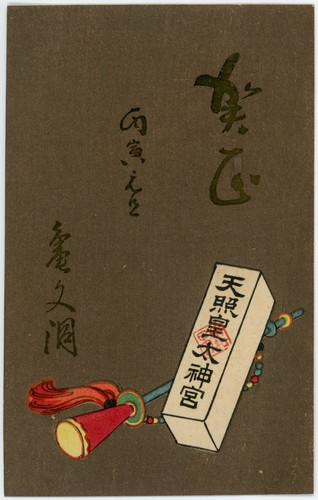 賀正
丙寅元旦
亀文洞
天照皇太神宮